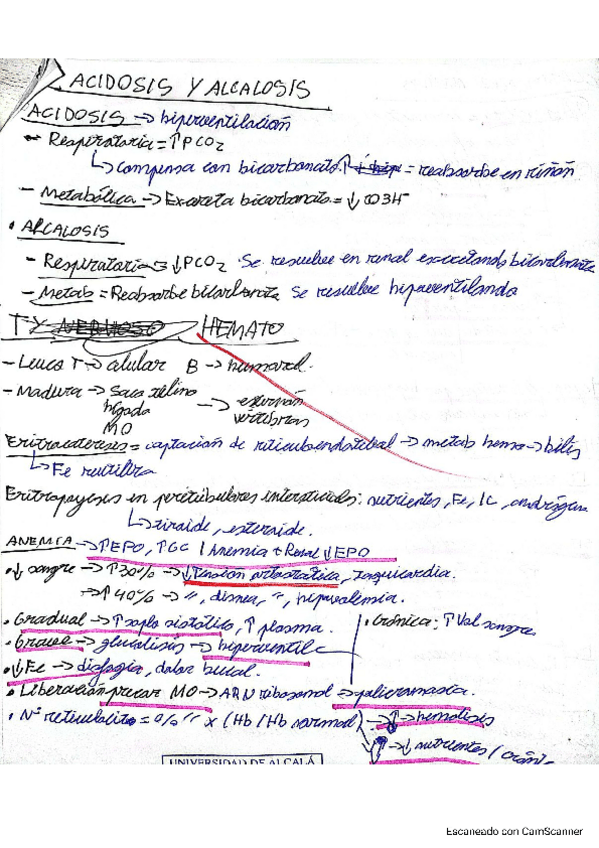 ACIDOSIS Y ALCALOSIS
ACIDOSIS → hiperventilación
- Respiratoria = ↑PCO₂
↳ compensa con bicarbonato ↑ = reabsorbe en riñón
- Metabólica → Excreta bicarbonato = ↓CO3H
• ARCALOSIS
- Respiratoria = ↓PCO₂ · Se resuelve en renal excretando bicarbonato
- Metab = Reabsorbe bicarbonata Se resuelve hipoventilando
T.Y NERVIOSO HEMATO
- Leuco T → celular B → humoral.
- Madura → Saco vitelino
hígado → esternón
MO vértebras
Eritrocateresis = captación de reticuloendotelial → metab hemo → bilis
↳ Fe reutiliza
Eritropoyesis en peritubulares intersticiales: nutrientes, Fe, IC, andrógeno
↳ tiroide, esteroide.
ANEMIA → ↑EPO, ↑GC / Anemia + Renal ↓EPO
• ↓ sangre → ↑30% → ↓Tensión ortostática, Taquicardia.
→ ↑40% → ", disnea, ", hipovolemia.
• Gradual → ↑soplo sistólico, ↑ plasma. • Crónica: ↑ Vol sangre
• Grave → glucólisis → hiperventil
• ↓Fe → disfagia, dolor bucal.
• Liberación precoz MO → ARN ribosomal → policromasia.
• Nº reticulocito = % " x (Hb / Hb normal) → ↑ → hemólisis
↓ → ↓ nutrientes /
UNIVERSIDAD DE ALCALÁ
Escaneado con CamScanner